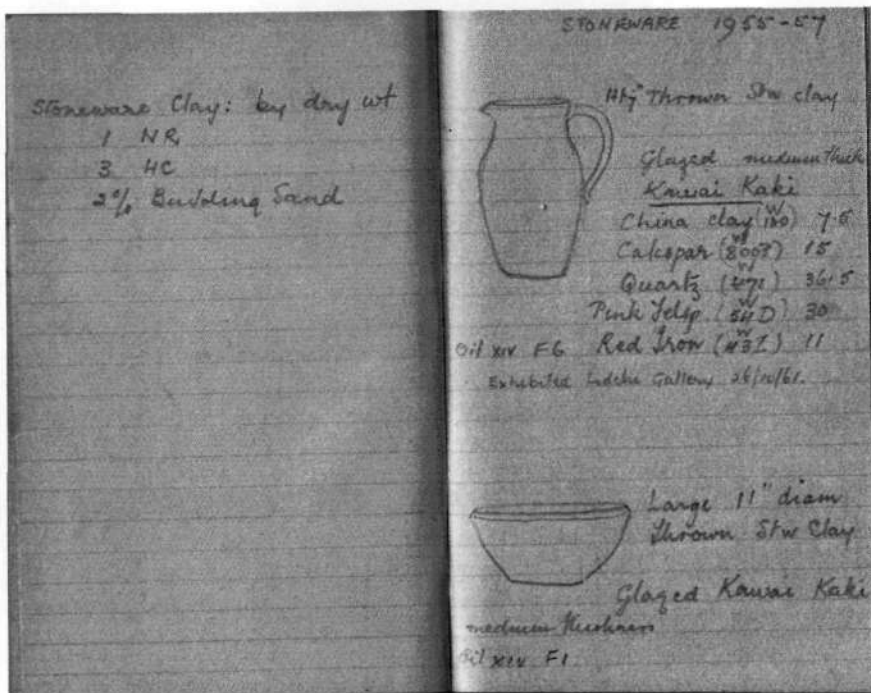 Stoneware Clay: by dry wt
1 NR
3 HC
2% Budding Sand
STONEWARE 1955-57
Thrown Stw clay
Glazed medium thick
Kawai Kaki
China clay (W 120) 7.5
Calcspar (W 8008) 15
Quartz (W 471) 36.5
Pink Felsp (W 54D) 30
Oil XIV F6 Red Iron (W 43I) 11
Exhibited Gallery 26/10/61.
Large 11" diam
Thrown Stw Clay
Glazed Kawai Kaki
medium thickness
Oil XIV F1